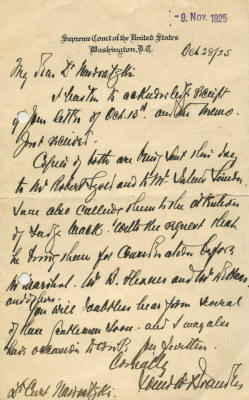 - 9. Nov. 1925
Supreme Court of the United States
Washington, D.C.
Oct 28/25
My dear Dr Nawratzki:
I hasten to acknowledge receipt
of your letter of Oct. 13th and the memo.
just received.
Copies of both are being sent this day
to Mr Robert Szold and to Mr
I am also calling them to the attention
of Judge Mack. With the request that
he bring them for consideration before
Mr B. Flexner and Mr
and others.
You will doubtless hear from several
of these gentlemen soon. and I may also
have occasion to write you further.
Cordially
Louis D. Brandeis
Dr Curt Nawratzki